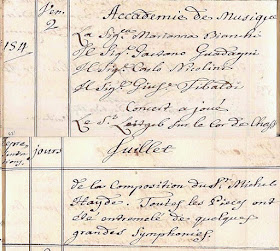 Ven. Accademie de Musique
2
154 La Sigra Marianna Bianchi
Il Sigr Gaetano Guadagni
Il Sigr Carlo Nicolini
Il Sigr Gius: Tibaldi
Concert a joué
Le Sr Leitgeb sur le Cor de Chass
jours Juillet
de la Composition du Sr Michel
Hayde. Toutes les Pieces ont
été entremelé de quelques
grandes Symphonies.